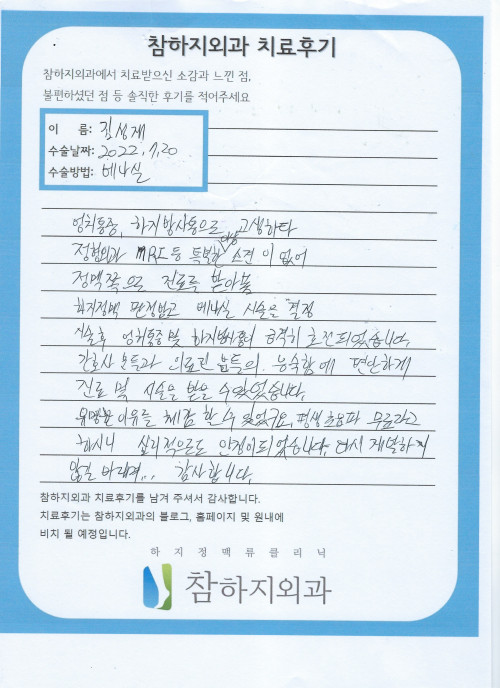 참하지외과 치료후기
참하지외과에서 치료받으신 소감과 느낀 점,
불편하셨던 점 등 솔직한 후기를 적어주세요
이 름:
수술날짜: 2022. 7. 20
수술방법: 베나실
엉치통증, 하지방사통으로 고생하다
정형외과 MRI 등 특별한 이상 소견이 없어
정맥쪽으로 진료를 받아봄
하지정맥 판정받고 베나실 시술을 결정
시술후 엉치통증 및 하지방사통이 급격히 호전되었습니다.
간호사 분들과 의료진 분들의 능숙함에 편안하게
진료 및 시술을 받을 수 있었습니다.
유명한 이유를 체감할 수 있었구요, 평생 초음파 무료라고
하시니 심리적으로도 안정이 되었습니다. 다시 재발하지
않길 바라며... 감사합니다.
참하지외과 치료후기를 남겨 주셔서 감사합니다.
치료후기는 참하지외과의 블로그, 홈페이지 및 원내에
비치 될 예정입니다.
하지정맥류클리닉
참하지외과